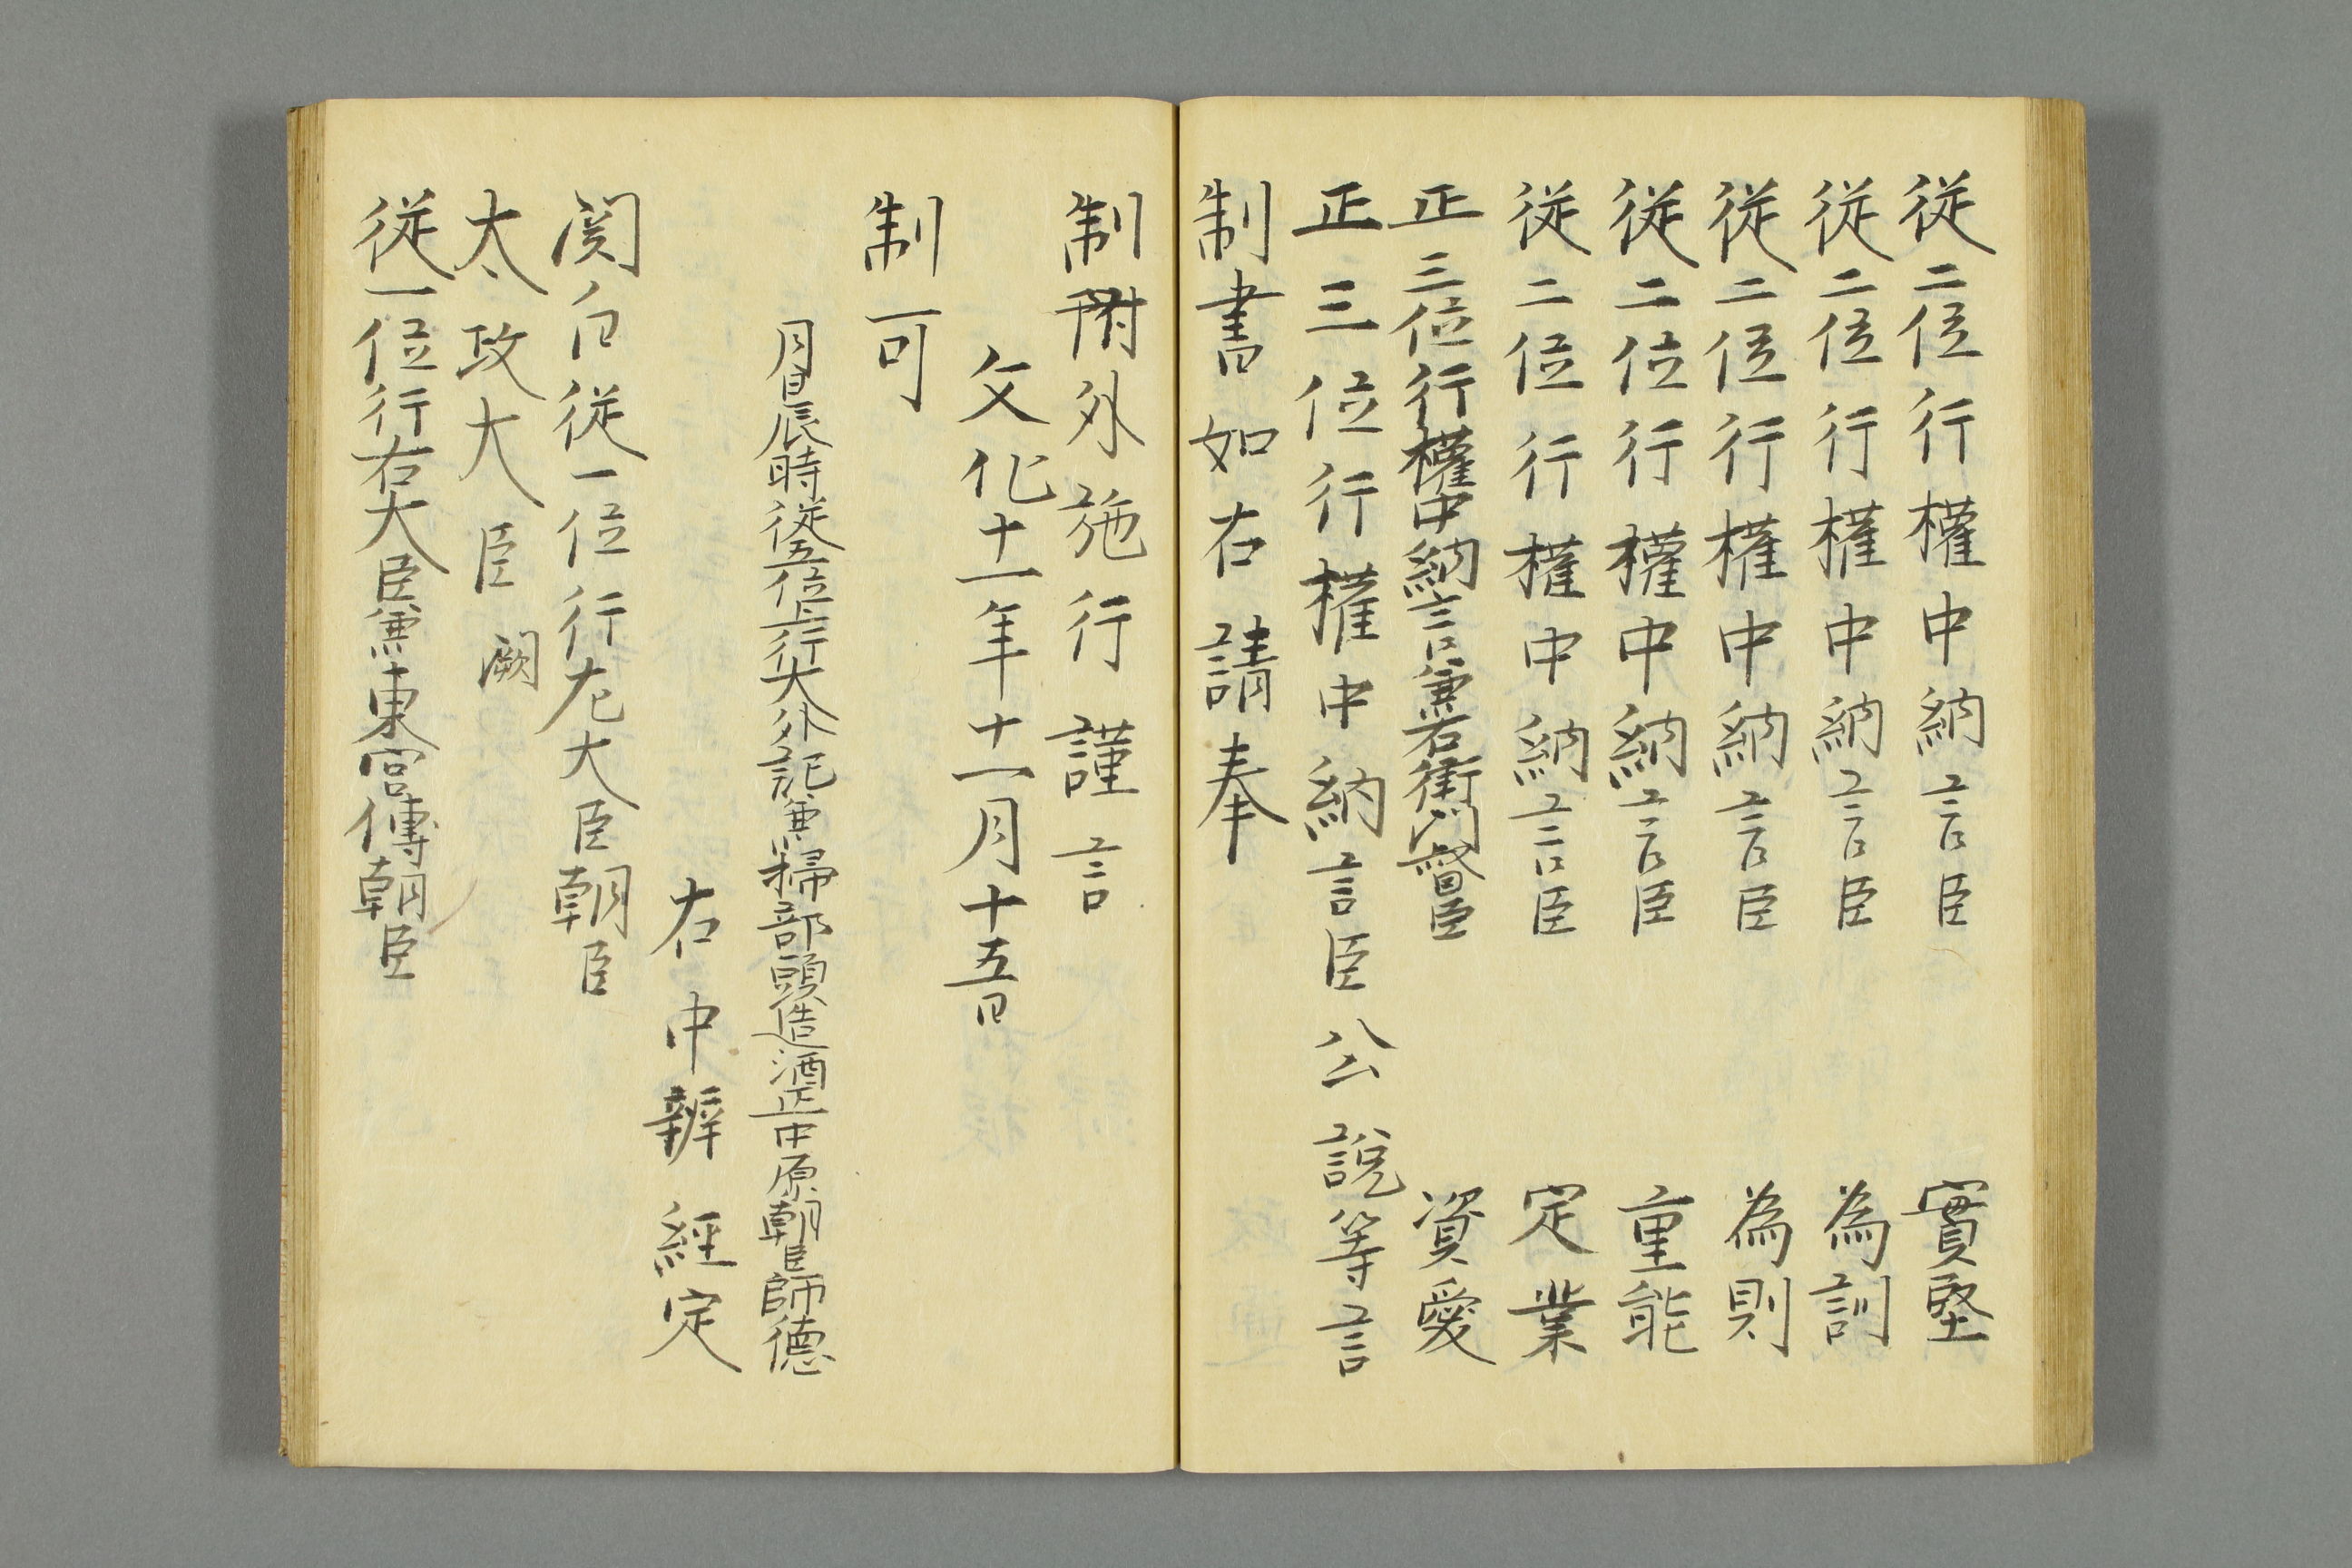 従二位行權中納言臣 實堅
従二位行權中納言臣 為訓
従二位行權中納言臣 為則
従二位行權中納言臣 重能
従二位行權中納言臣 定業
正三位行權中納言兼右衛門督臣 資愛
正三位行權中納言臣公説等言
制書如右請奉
制附外施行謹言
文化十一年十一月十五日
制可
月日辰時従五位上行大外記兼掃部頭造酒正中原朝臣師德
右中辨經定
関白従一位行左大臣朝臣
太政大臣 闕
従一位行右大臣兼東宮傅朝臣